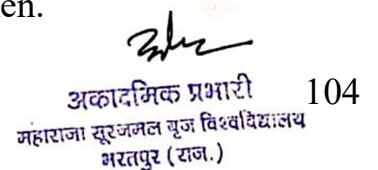 en.
अकादमिक प्रभारी 104
महाराजा सूरजमल बृज विश्वविद्यालय
भरतपुर (राज.)